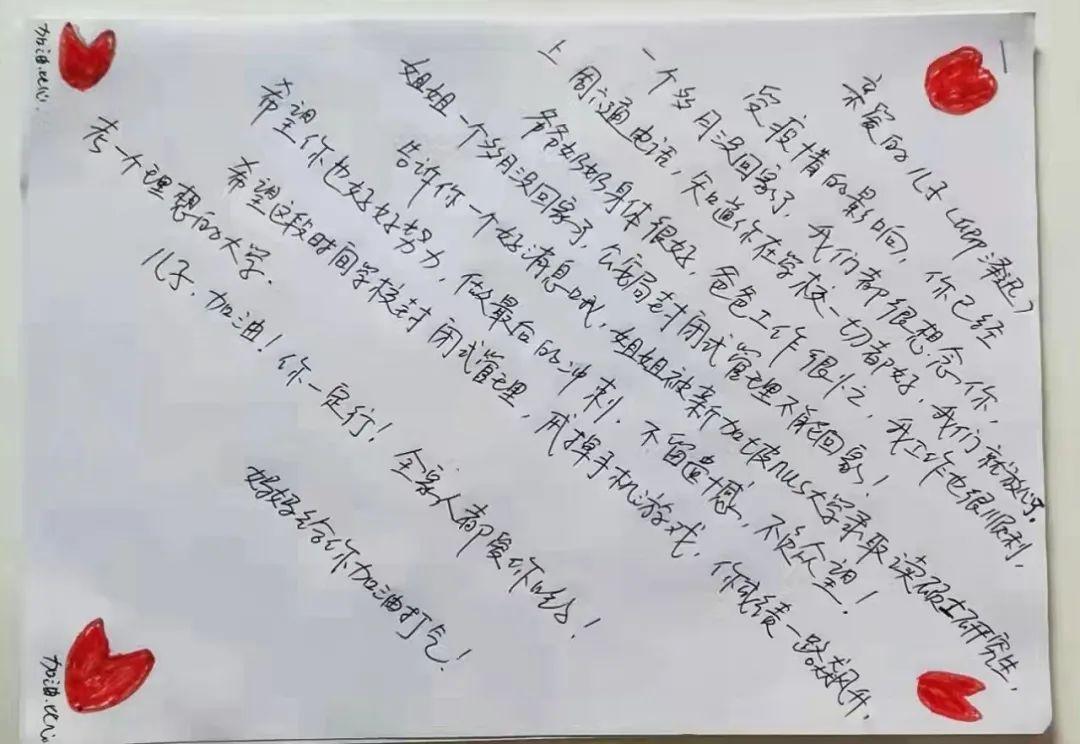 亲爱的儿子(upup泽迅)
受疫情的影响,你已经
一个多月没回家了,我们都很想念你,
上周六通电话,知道你在学校一切都好,我们就放心了.
爷爷奶奶身体很好,爸爸工作很忙,我工作也很顺利.
姐姐一个多月没回家了,公安局封闭式管理不能回家!
告诉你一个好消息哦,姐姐被新加坡nus大学录取读硕士研究生,
希望你也好好努力,做最后的冲刺.不留遗憾,不负众望!
希望这段时间学校封闭式管理,戒掉手机游戏,你成绩一路飙升,
考一个理想的大学.
儿子,加油!你一定行!全家人都爱你哟!
妈妈给你加油打气!
加油.比心.
加油.比心.